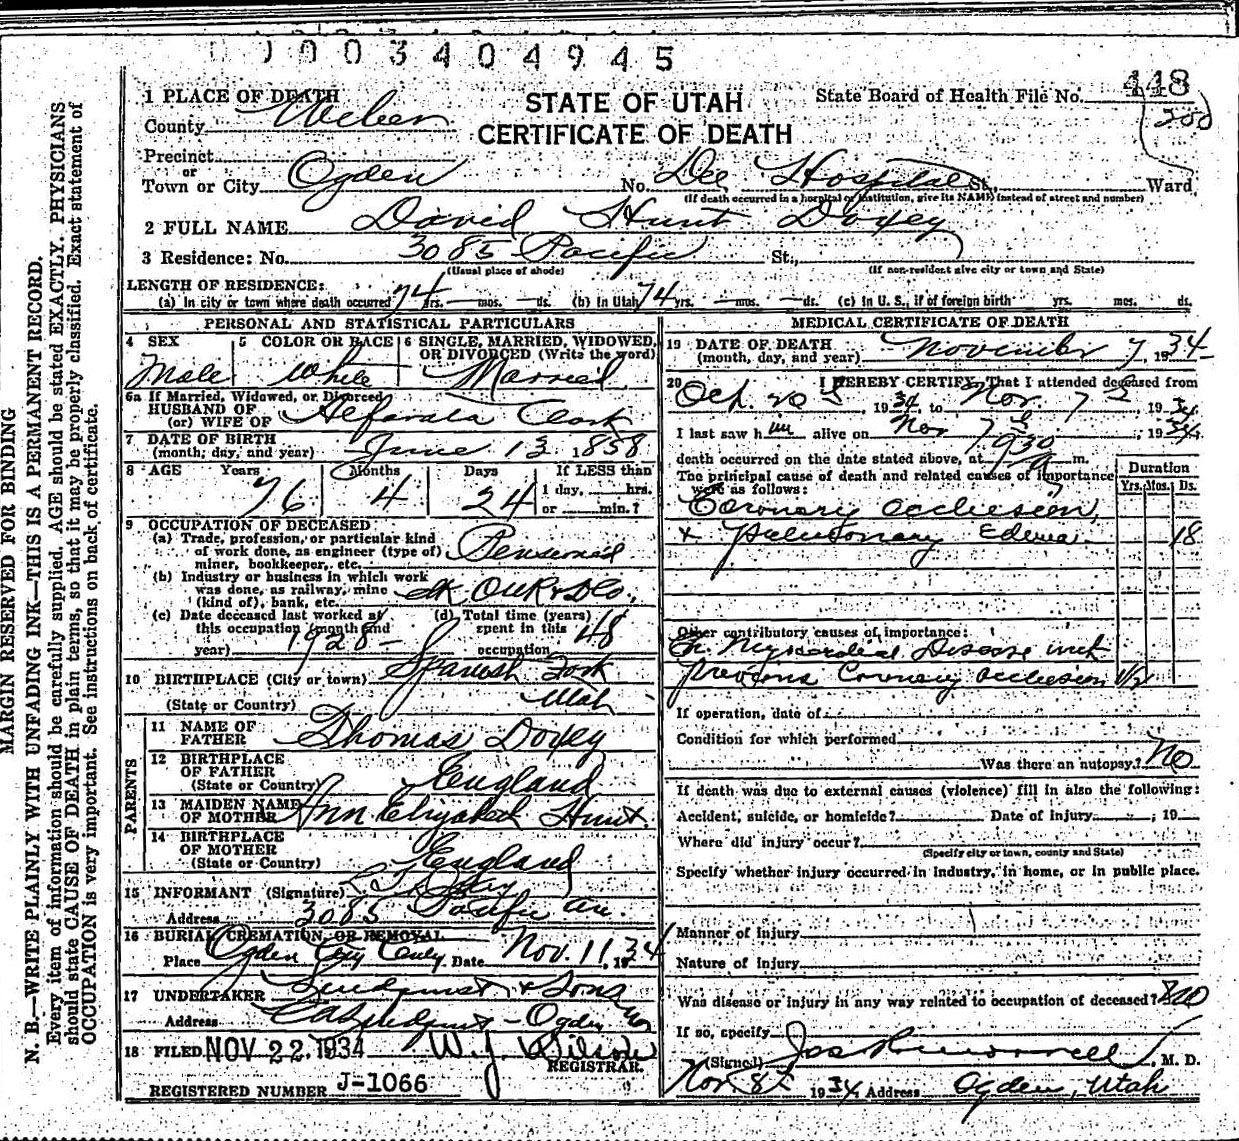 003404945
1 PLACE OF DEATH
STATE OF UTAH
CERTIFICATE OF DEATH
State Board of Health File No. 448
200
County Weber
Precinct
or
Town or City Ogden No. Dee Hospital St., Ward
(If death occurred in a hospital or institution, give its NAME instead of street and number)
2 FULL NAME David Hunt Doxey
3 Residence: No. 3085 Pacific St.,
(Usual place of abode) (If non-resident give city or town and State)
LENGTH OF RESIDENCE:
(a) In city or town where death occurred 74 yrs. — mos. — ds. (b) In Utah 74 yrs. — mos. — ds. (c) In U. S., if of foreign birth yrs. mos. ds.
PERSONAL AND STATISTICAL PARTICULARS
4 SEX Male
5 COLOR OR RACE White
6 SINGLE, MARRIED, WIDOWED, OR DIVORCED (Write the word) Married
6a If Married, Widowed, or Divorced
HUSBAND OF
(or) WIFE OF Clark
7 DATE OF BIRTH
(month, day, and year) June 13 1858
8 AGE Years Months Days If LESS than
76 4 24 1 day, hrs.
or min.?
9 OCCUPATION OF DECEASED
(a) Trade, profession, or particular kind
of work done, as engineer (type of)
miner, bookkeeper, etc. Pensioned
(b) Industry or business in which work
was done, as railway, mine
(kind of), bank, etc.
(c) Date deceased last worked at
this occupation (month and
year) 1928
(d) Total time (years)
spent in this
occupation 48
10 BIRTHPLACE (City or town) Spanish Fork
(State or Country) Utah
PARENTS
11 NAME OF
FATHER Thomas Doxey
12 BIRTHPLACE
OF FATHER
(State or Country) England
13 MAIDEN NAME
OF MOTHER Ann Elizabeth Hunt
14 BIRTHPLACE
OF MOTHER
(State or Country) England
15 INFORMANT (Signature)
Address 3085 Pacific Av.
16 BURIAL, CREMATION, OR REMOVAL
Place Ogden City Cem'y Date Nov. 11, 1934
17 UNDERTAKER Lindquist & Sons
Address Lindquist - Ogden
18 FILED NOV 22 1934 W. J. Wilson
REGISTRAR.
REGISTERED NUMBER J-1066
MEDICAL CERTIFICATE OF DEATH
19 DATE OF DEATH
(month, day, and year) November 7, 1934
20 I HEREBY CERTIFY, That I attended deceased from
Oct. 20th, 1934, to Nov. 7th, 1934
I last saw him alive on Nov 7th, 1934,
death occurred on the date stated above, at 930 a m.
The principal cause of death and related causes of importance
were as follows:
Duration
Yrs. Mos. Ds.
Coronary occlusion,
+ pulmonary Edema 18
Other contributory causes of importance:
Ch. Myocardial Disease with
previous Coronary occlusion 1/2
If operation, date of
Condition for which performed
Was there an autopsy? No
If death was due to external causes (violence) fill in also the following:
Accident, suicide, or homicide? Date of injury , 19
Where did injury occur?
(Specify city or town, county and State)
Specify whether injury occurred in industry, in home, or in public place.
Manner of injury
Nature of injury
Was disease or injury in any way related to occupation of deceased? no
If so, specify
(Signed) , M. D.
Nov 8th 1934 Address Ogden, Utah
MARGIN RESERVED FOR BINDING
N. B.—WRITE PLAINLY WITH UNFADING INK—THIS IS A PERMANENT RECORD.
Every item of information should be carefully supplied. AGE should be stated EXACTLY. PHYSICIANS
should state CAUSE OF DEATH in plain terms, so that it may be properly classified. Exact statement of
OCCUPATION is very important. See instructions on back of certificate.